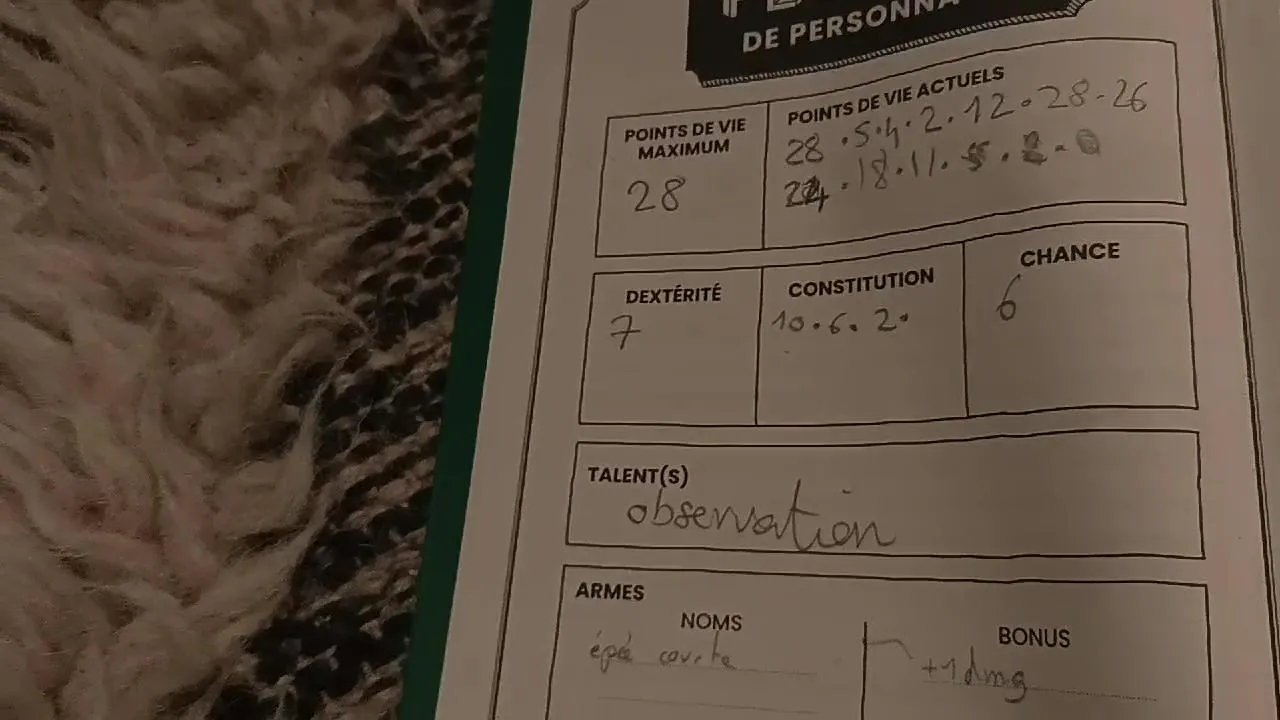 DE PERSONNA
POINTS DE VIE
MAXIMUM
28
POINTS DE VIE ACTUELS
28 . 5 . 4 . 2 . 12 . 28 - 26
24 . 18 . 11 .
DEXTÉRITÉ
7
CONSTITUTION
10 . 6 . 2 .
CHANCE
6
TALENT(S)
observation
ARMES
NOMS
épée courte
BONUS
+1 dmg